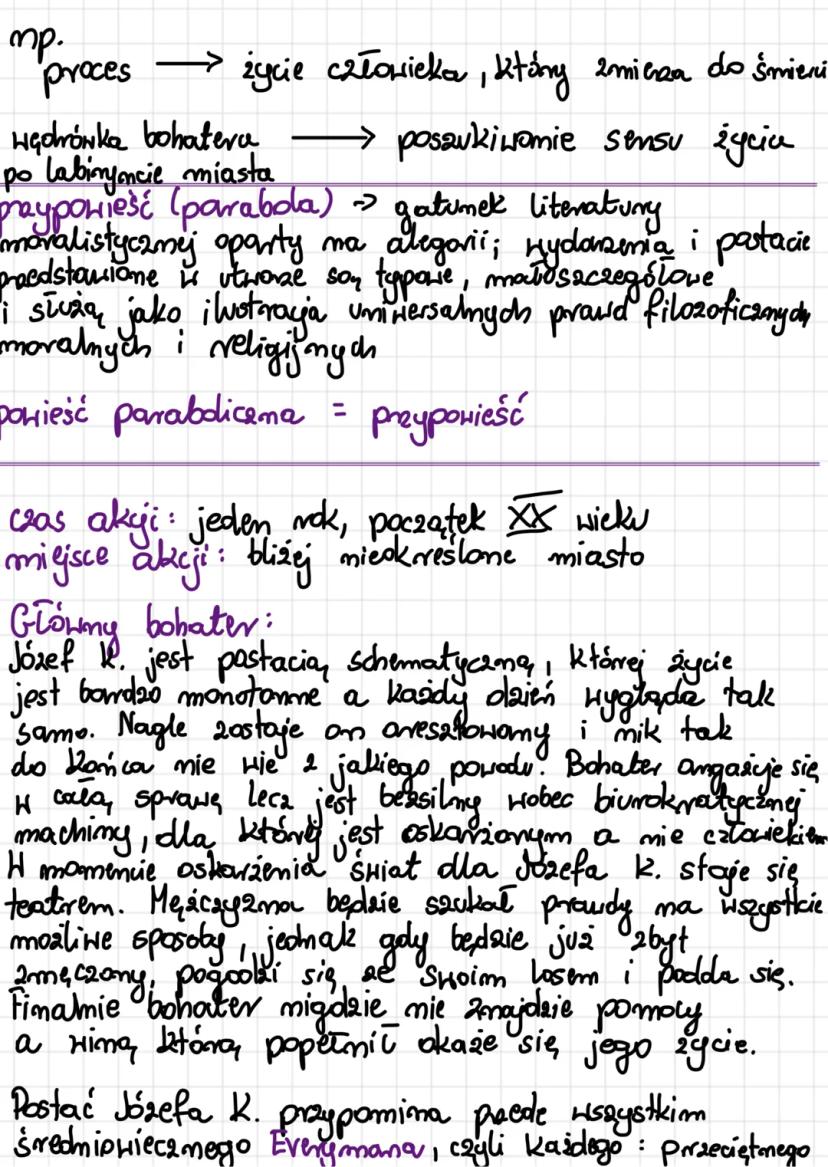 np.
proces → życie człowieka, który zmierza do śmierci
wędrówka bohatera → poszukiwanie sensu życia
po labiryncie miasta
przypowieść (parabola) → gatunek literatury
moralistycznej oparty na alegorii; wydarzenia i postacie
przedstawione w utworze są typowe, mało szczegółowe
i służą jako ilustracja uniwersalnych prawd filozoficznych
moralnych i religijnych
powieść paraboliczna = przypowieść
czas akcji: jeden rok, początek XX wieku
miejsce akcji: bliżej nieokreślone miasto
Główny bohater:
Józef K. jest postacią schematyczną, której życie
jest bardzo monotonne a każdy dzień wygląda tak
samo. Nagle zostaje on aresztowany i nik tak
do końca nie wie z jakiego powodu. Bohater angażuje się
w całą sprawę lecz jest bezsilny wobec biurokratycznej
machiny, dla której jest oskarżonym a nie człowiekiem
W momencie oskarżenia świat dla Józefa K. staje się
teatrem. Mężczyzna będzie szukał prawdy na wszystkie
możliwe sposoby, jednak gdy będzie już zbyt
zmęczony, pogodzi się ze swoim losem i podda się.
Finalnie bohater nigdzie nie znajdzie pomocy
a winą którą popełnił okaże się jego życie.
Postać Józefa K. przypomina przede wszystkim
średniowiecznego Everymana, czyli Każdego: przeciętnego